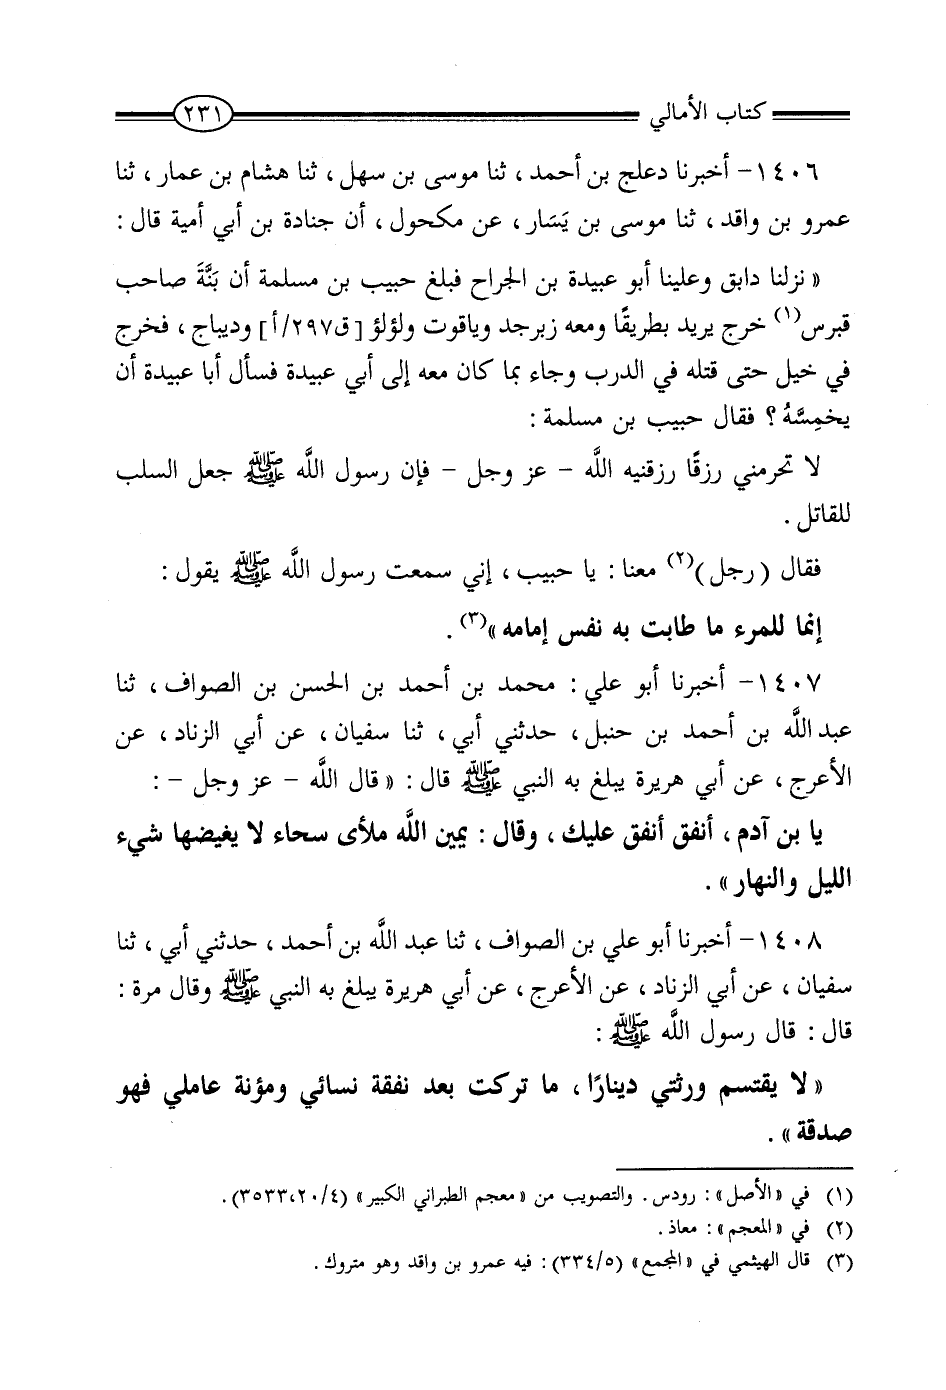 كتاب الأمالي ٢٣١
١٤٠٦- أخبرنا دعلج بن أحمد ، ثنا موسى بن سهل ، ثنا هشام بن عمار ، ثنا
عمرو بن واقد ، ثنا موسى بن يَسَار ، عن مكحول ، أن جنادة بن أبي أمية قال :
« نزلنا دابق وعلينا أبو عبيدة بن الجراح فبلغ حبيب بن مسلمة أن بَنَّةَ صاحب
قبرس(١) خرج يريد بطريقًا ومعه زبرجد وياقوت ولؤلؤ [ق٢٩٧/أ] وديباج ، فخرج
في خيل حتى قتله في الدرب وجاء بما كان معه إلى أبي عبيدة فسأل أبا عبيدة أن
يخمِسَّهُ ؟ فقال حبيب بن مسلمة :
لا تحرمني رزقًا رزقنيه اللَّه - عز وجل - فإن رسول اللَّه ﷺ جعل السلب
للقاتل .
فقال (رجل)(٢) معنا : يا حبيب ، إني سمعت رسول اللَّه ﷺ يقول :
إنما للمرء ما طابت به نفس إمامه »(٣) .
١٤٠٧- أخبرنا أبو علي : محمد بن أحمد بن الحسن بن الصواف ، ثنا
عبد اللَّه بن أحمد بن حنبل ، حدثني أبي ، ثنا سفيان ، عن أبي الزناد ، عن
الأعرج ، عن أبي هريرة يبلغ به النبي ﷺ قال : « قال اللَّه - عز وجل - :
يا بن آدم ، أنفق أنفق عليك ، وقال : يمين اللَّه ملأى سحاء لا يغيضها شيء
الليل والنهار » .
١٤٠٨- أخبرنا أبو علي بن الصواف ، ثنا عبد اللَّه بن أحمد ، حدثني أبي ، ثنا
سفيان ، عن أبي الزناد ، عن الأعرج ، عن أبي هريرة يبلغ به النبي ﷺ وقال مرة :
قال : قال رسول اللَّه ﷺ :
« لا يقتسم ورثتي دينارًا ، ما تركت بعد نفقة نسائي ومؤنة عاملي فهو
صدقة » .
(١) في «الأصل» : رودس . والتصويب من «معجم الطبراني الكبير» (٣٥٣٣،٢٠/٤).
(٢) في «المعجم» : معاذ .
(٣) قال الهيثمي في «المجمع» (٣٣٤/٥) : فيه عمرو بن واقد وهو متروك .